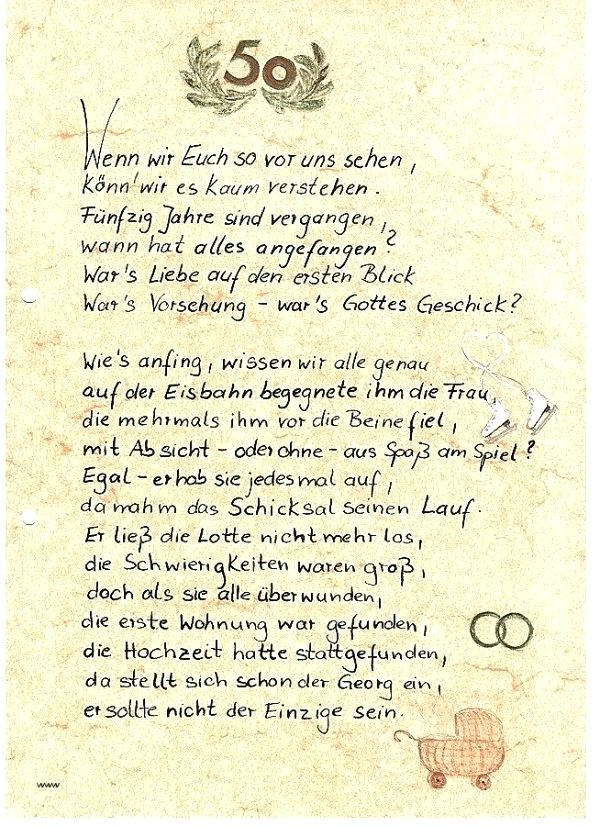 50
Wenn wir Euch so vor uns sehen,
könn' wir es kaum verstehen.
Fünfzig Jahre sind vergangen,
wann hat alles angefangen?
War's Liebe auf den ersten Blick
War's Vorsehung - war's Gottes Geschick?
Wie's anfing, wissen wir alle genau
auf der Eisbahn begegnete ihm die Frau,
die mehrmals ihm vor die Beine fiel,
mit Absicht - oder ohne - aus Spaß am Spiel?
Egal - er hob sie jedesmal auf,
da nahm das Schicksal seinen Lauf.
Er ließ die Lotte nicht mehr los,
die Schwierigkeiten waren groß,
doch als sie alle überwunden,
die erste Wohnung war gefunden,
die Hochzeit hatte stattgefunden,
da stellt sich schon der Georg ein,
er sollte nicht der Einzige sein.
www